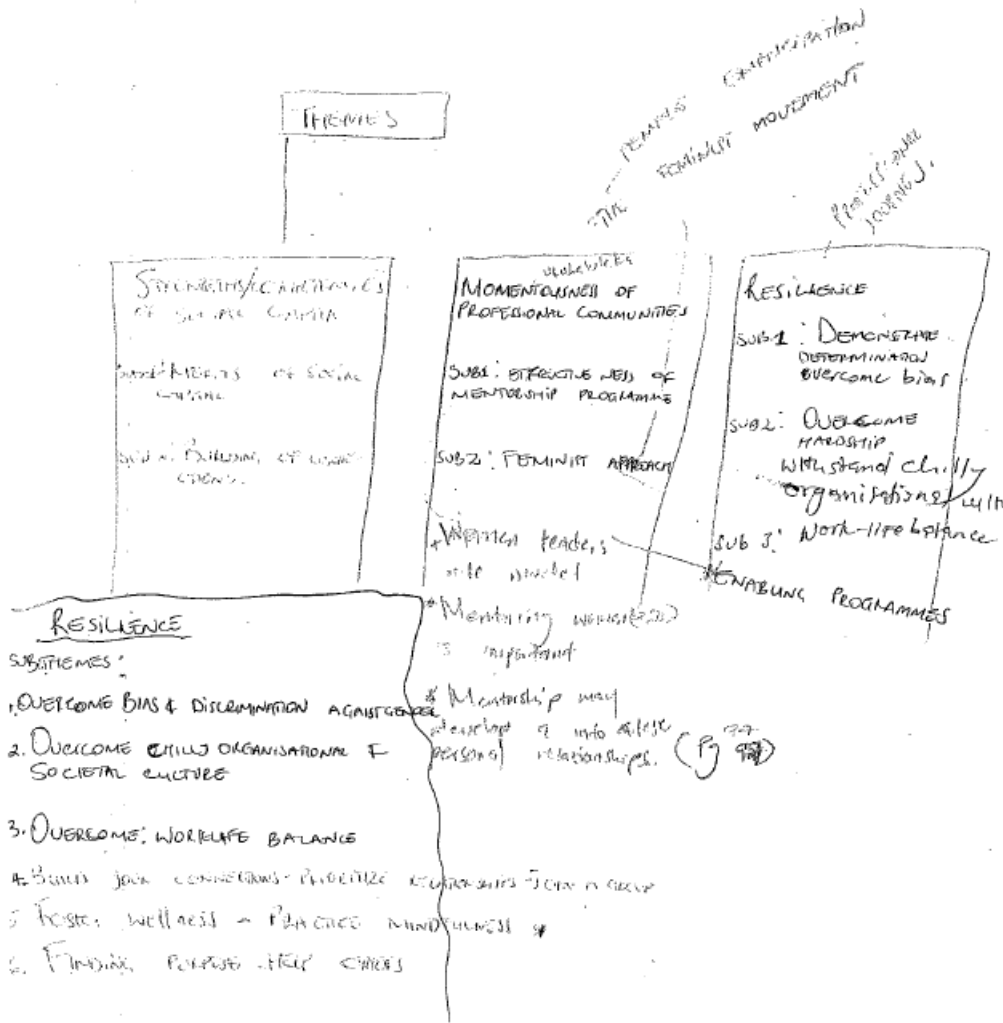 THEMES
FEMALE EMANCIPATION
THE FEMINIST MOVEMENT
PROFESSIONAL
JOURNEYS.
OF SOCIAL CAPITAL
OF SOCIAL
CAPITAL
BUILDING OF
MOMENTOUSNESS OF
PROFESSIONAL COMMUNITIES
SUB1: EFFECTIVENESS OF
MENTORSHIP PROGRAMME
SUB2: FEMINIST APPROACH
* Women leaders
* Mentoring
is important
* Mentorship may
develop into
personal relationships. (Pg
RESILIENCE
SUB1: DEMONSTRATE
DETERMINATION
overcome bias
SUB2: OVERCOME
HARDSHIP
withstand chilly
organisational
SUB 3: Work-life balance
* ENABLING PROGRAMMES
RESILIENCE
SUBTHEMES:
1. OVERCOME BIAS & DISCRIMINATION AGAIST GENDER
2. OVERCOME CHILLY ORGANISATIONAL &
SOCIETAL CULTURE
3. OVERCOME: WORKLIFE BALANCE
4. BUILD YOUR CONNECTIONS - PRIORITIZE RELATIONSHIPS - JOIN A GROUP
5. FOSTER WELLNESS - PRACTICE MINDFULNESS
6. FINDING PURPOSE - HELP OTHERS